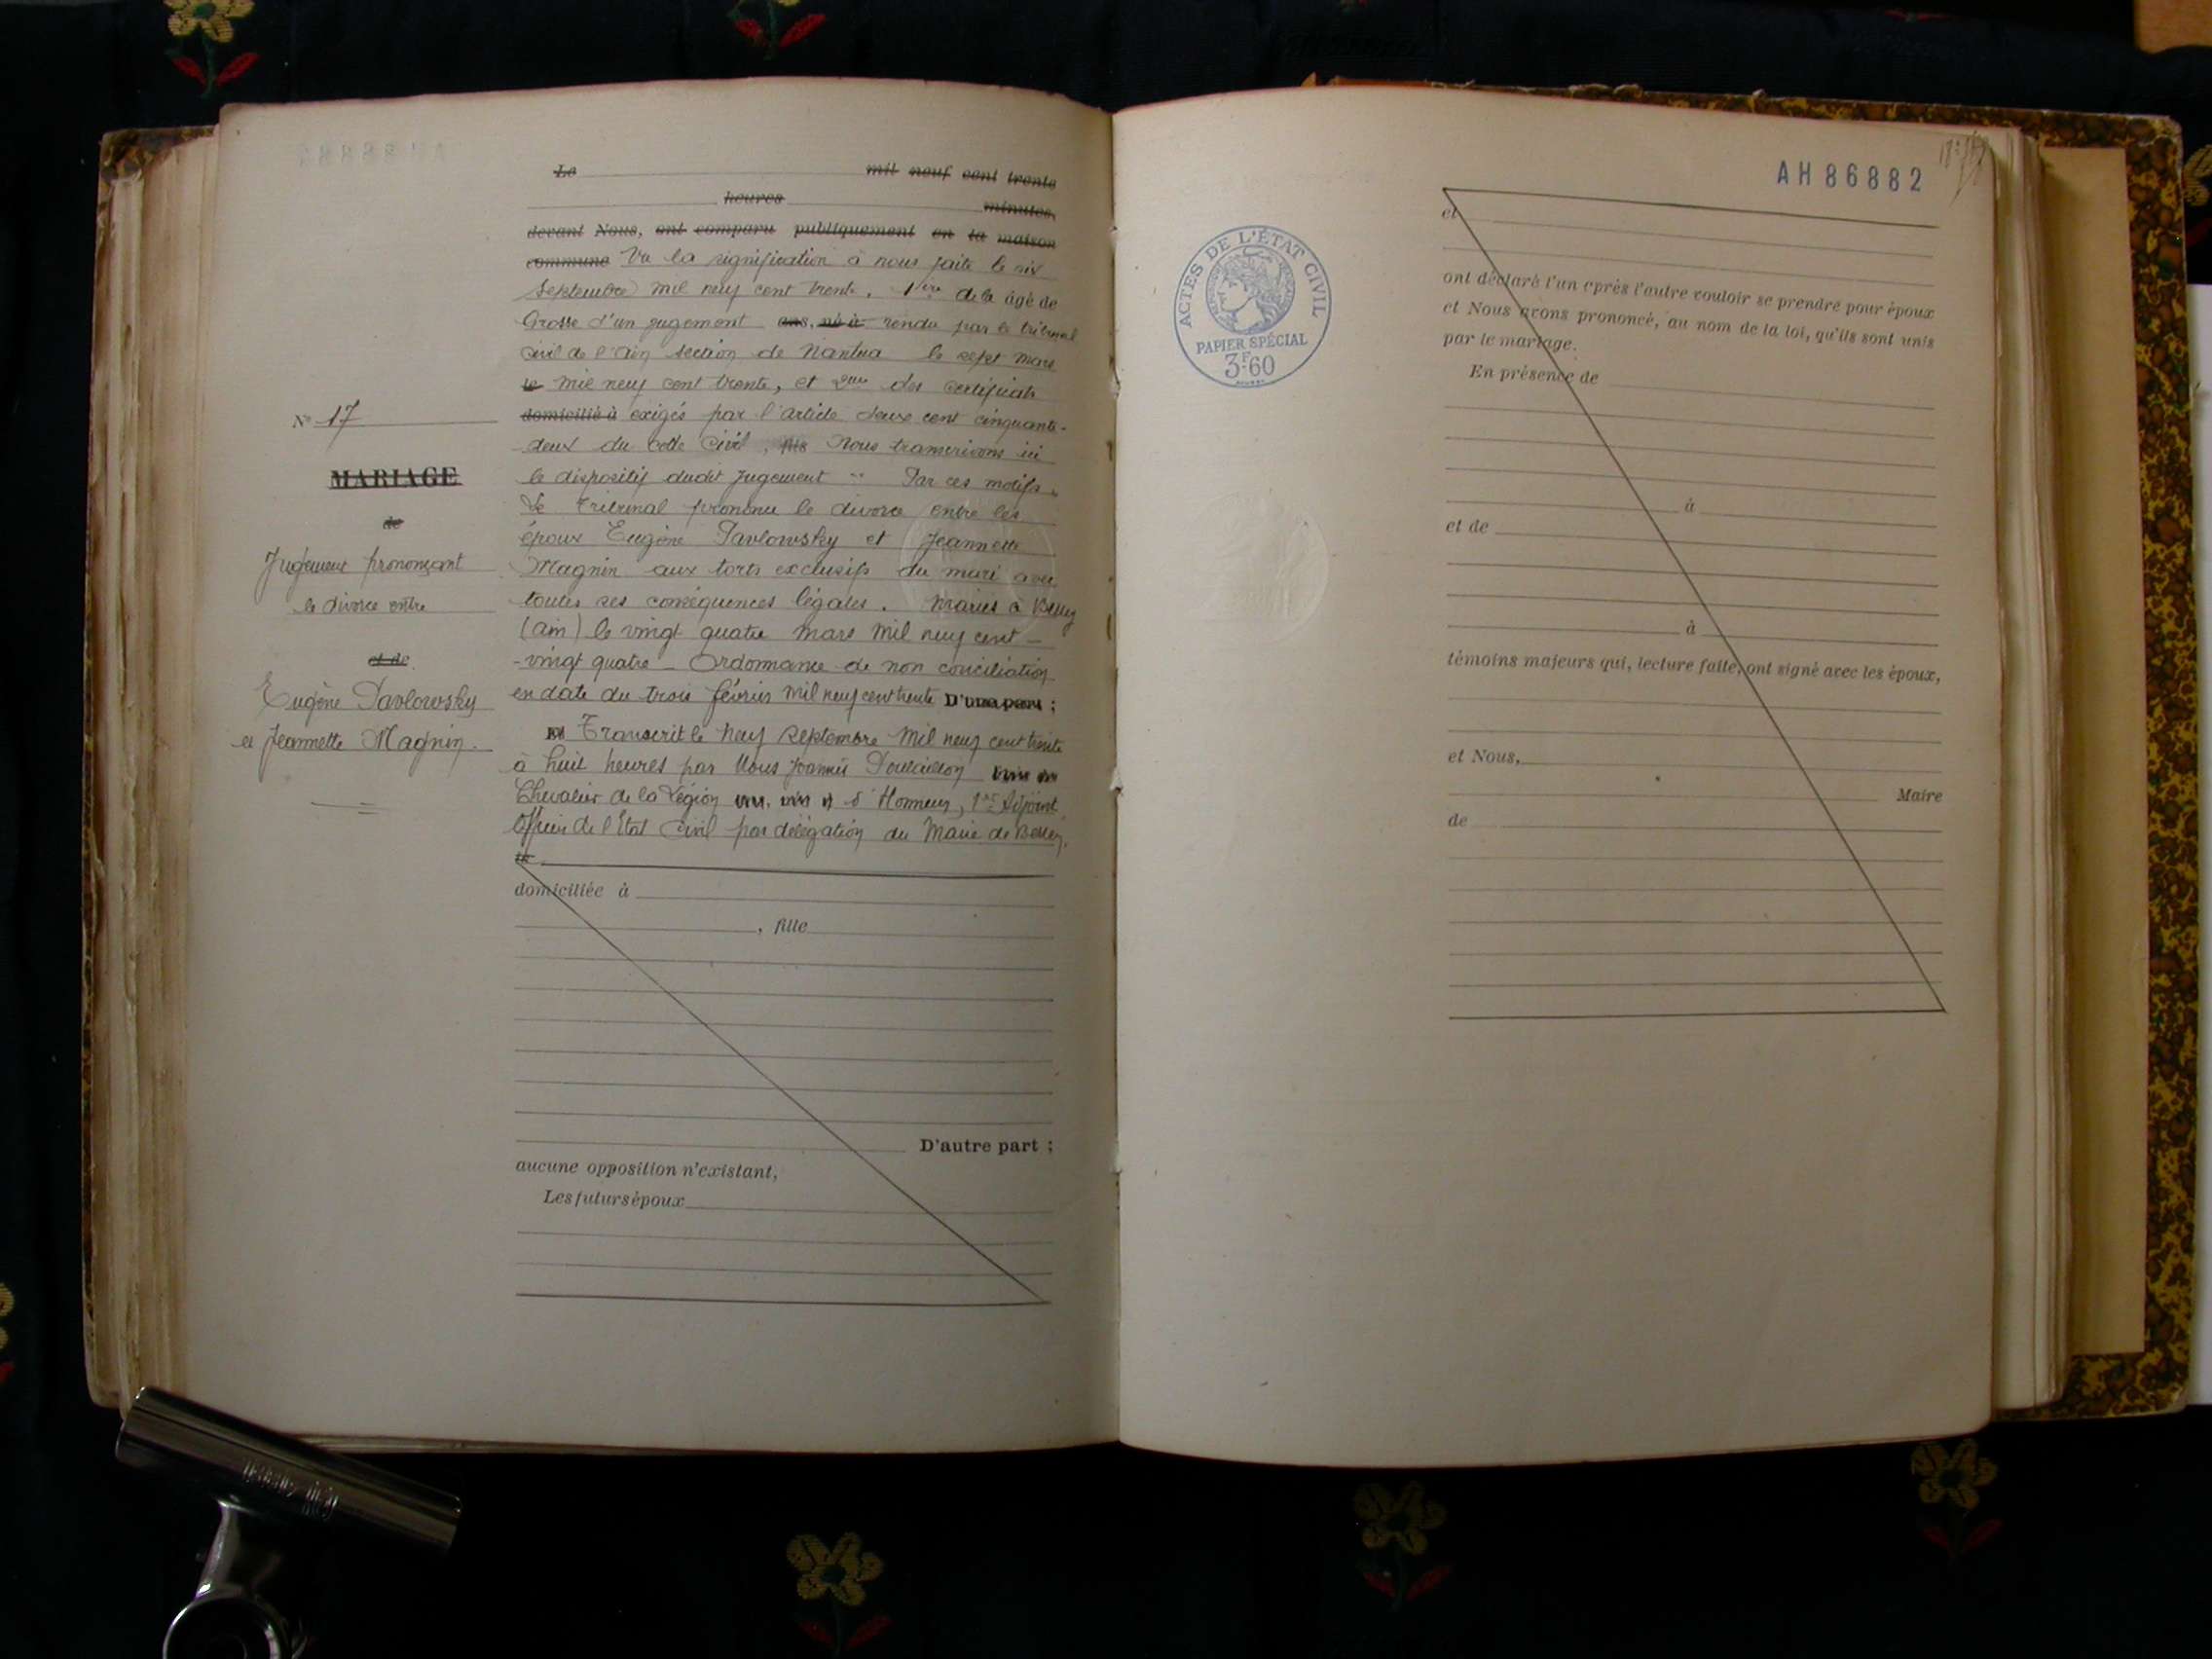 Le mil neuf cent trente
heures minutes,
devant Nous, ont comparu publiquement en la maison
commune Vu la signification à nous faite le six
Septembre mil neuf cent trente. 1ère de la âgé de
Grosse d'un jugement ans, né à rendu par le tribunal
civil de l'ain section de Nantua le sept mars
le mil neuf cent trente, et 2me des certificats
domicilié à exigés par l'article deux cent cinquante-
deux du code civil, fils Nous transcrivons ici
le dispositif dudit jugement :- Par ces motifs,
Le Tribunal prononce le divorce entre les
époux Eugène Pavlowsky et Jeannette
Magnin aux torts exclusifs du mari avec
toutes ses conséquences légales. Mariés à Belley
(ain) le vingt quatre mars mil neuf cent -
- vingt quatre - Ordonnance de non conciliation
en date du trois février mil neuf cent trente D'une part ;
Et Transcrit le neuf septembre mil neuf cent trente
à huit heures par Nous Joannès
Chevalier de la Légion d'Honneur, 1er Adjoint
Officier de l'Etat Civil par délégation du Maire de Belley.
domiciliée à
, fille
D'autre part ;
aucune opposition n'existant,
Les futurs époux
N° 17
MARIAGE
de
Jugement prononçant
le divorce entre
et de
Eugène Pavlowsky
et Jeannette Magnin.
AH 86882
ACTES DE L'ÉTAT CIVIL
PAPIER SPÉCIAL
3F60
et
ont déclaré l'un après l'autre vouloir se prendre pour époux
et Nous avons prononcé, au nom de la loi, qu'ils sont unis
par le mariage.
En présence de
à
et de
à
témoins majeurs qui, lecture faite, ont signé avec les époux,
et Nous,
Maire
de